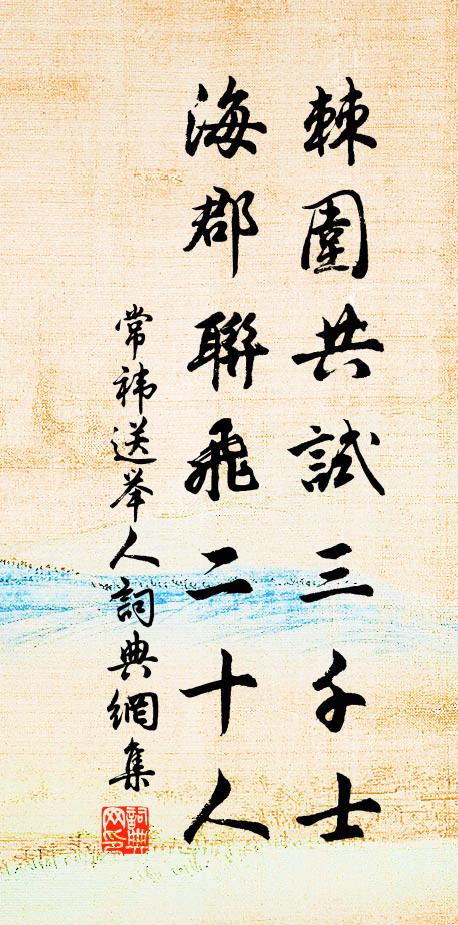 棘圍共試三千士
海郡聯飛二十人
常褘送举人詞典網集
詞典网印